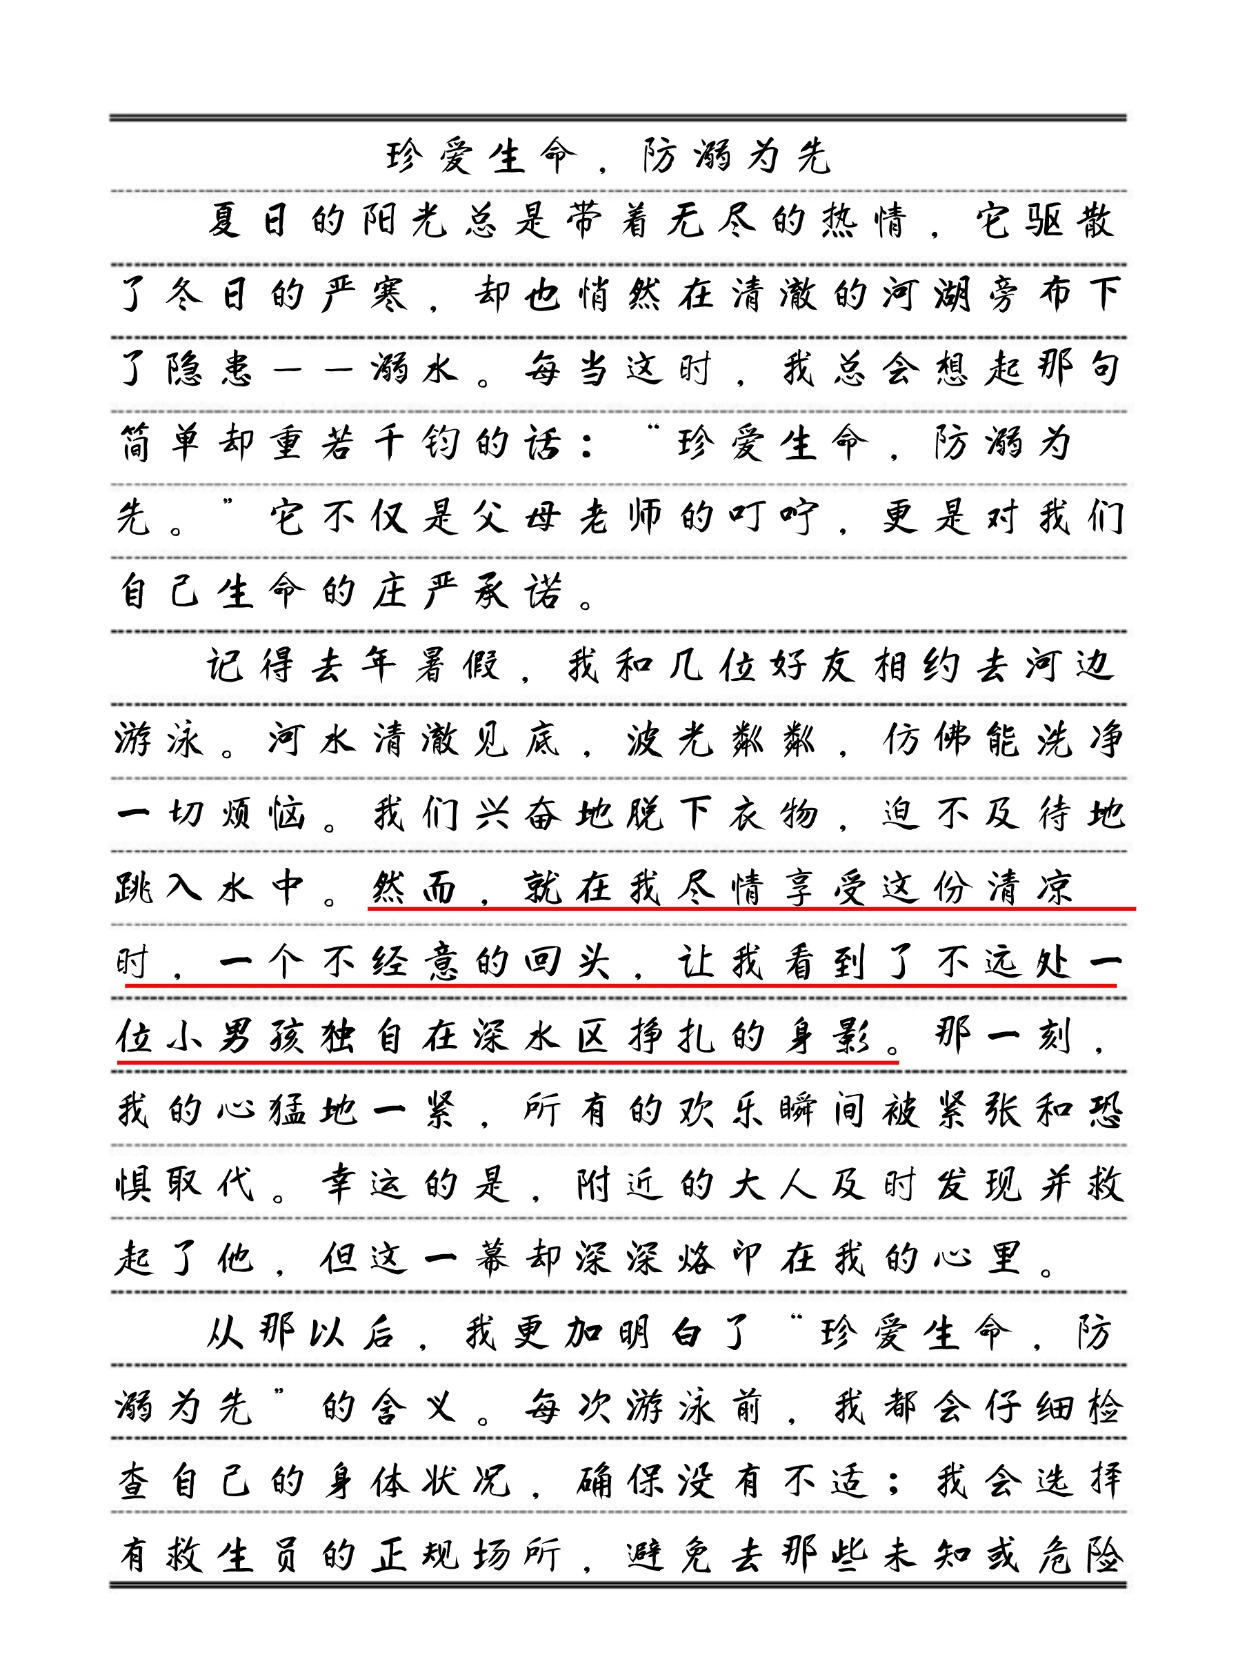 珍爱生命，防溺为先
夏日的阳光总是带着无尽的热情，它驱散
了冬日的严寒，却也悄然在清澈的河湖旁布下
了隐患——溺水。每当这时，我总会想起那句
简单却重若千钧的话：“珍爱生命，防溺为
先。”它不仅是父母老师的叮咛，更是对我们
自己生命的庄严承诺。
记得去年暑假，我和几位好友相约去河边
游泳。河水清澈见底，波光粼粼，仿佛能洗净
一切烦恼。我们兴奋地脱下衣物，迫不及待地
跳入水中。然而，就在我尽情享受这份清凉
时，一个不经意的回头，让我看到了不远处一
位小男孩独自在深水区挣扎的身影。那一刻，
我的心猛地一紧，所有的欢乐瞬间被紧张和恐
惧取代。幸运的是，附近的大人及时发现并救
起了他，但这一幕却深深烙印在我的心里。
从那以后，我更加明白了“珍爱生命，防
溺为先”的含义。每次游泳前，我都会仔细检
查自己的身体状况，确保没有不适；我会选择
有救生员的正规场所，避免去那些未知或危险